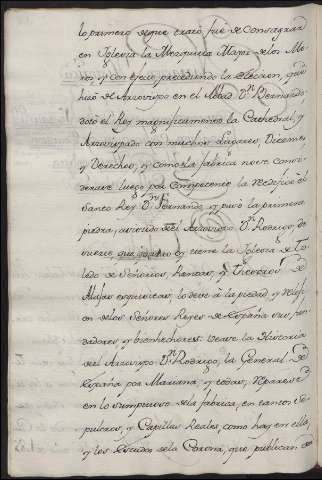 lo primero de que trató, fué de Consagrar
en Iglesia la Mezquita Mayor de los Mo-
ros, y con efecto, precediendo la eleccion, que
hizó de Arzovispo en el Abad Dn. Bernardo
dotó el Rey magnificamente la Cathedral, y
Arzovispado con muchos Lugares, Diezmos
y Derechos, y como la fabrica no se consi-
derave luego por competente la reedificó el
Santo Rey Dn. Fernando, y pusó la primera
piedra, asistido del Arzovispo Dn. Rodrigo, de
suerte que quanto oy tiene la Iglesia de To-
ledo de Señorios, Rentas, y Thesoros de
Alajas exquisitas, lo deve à la piedad, y Relig-
ion de los Señores Reyes de España sus fun-
dadores y bienhechores: Vease la Historia
del Arzovispo Dn. Rodrigo, la General de
España por Mariana, y todas, Reparese
en lo sumptuoso de la fabrica, en tantos Se-
pulcros, y Capillas Reales, como hay en ella,
y los Escudos de la Corona, que publican